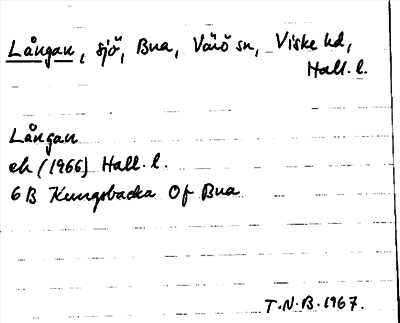 Långan, sjö, Bua, Värö sn, Viske hd,
Hall. l.
Långan
ek (1966) Hall. l.
6 B Kungsbacka 0f Bua
T.N.B. 1967.